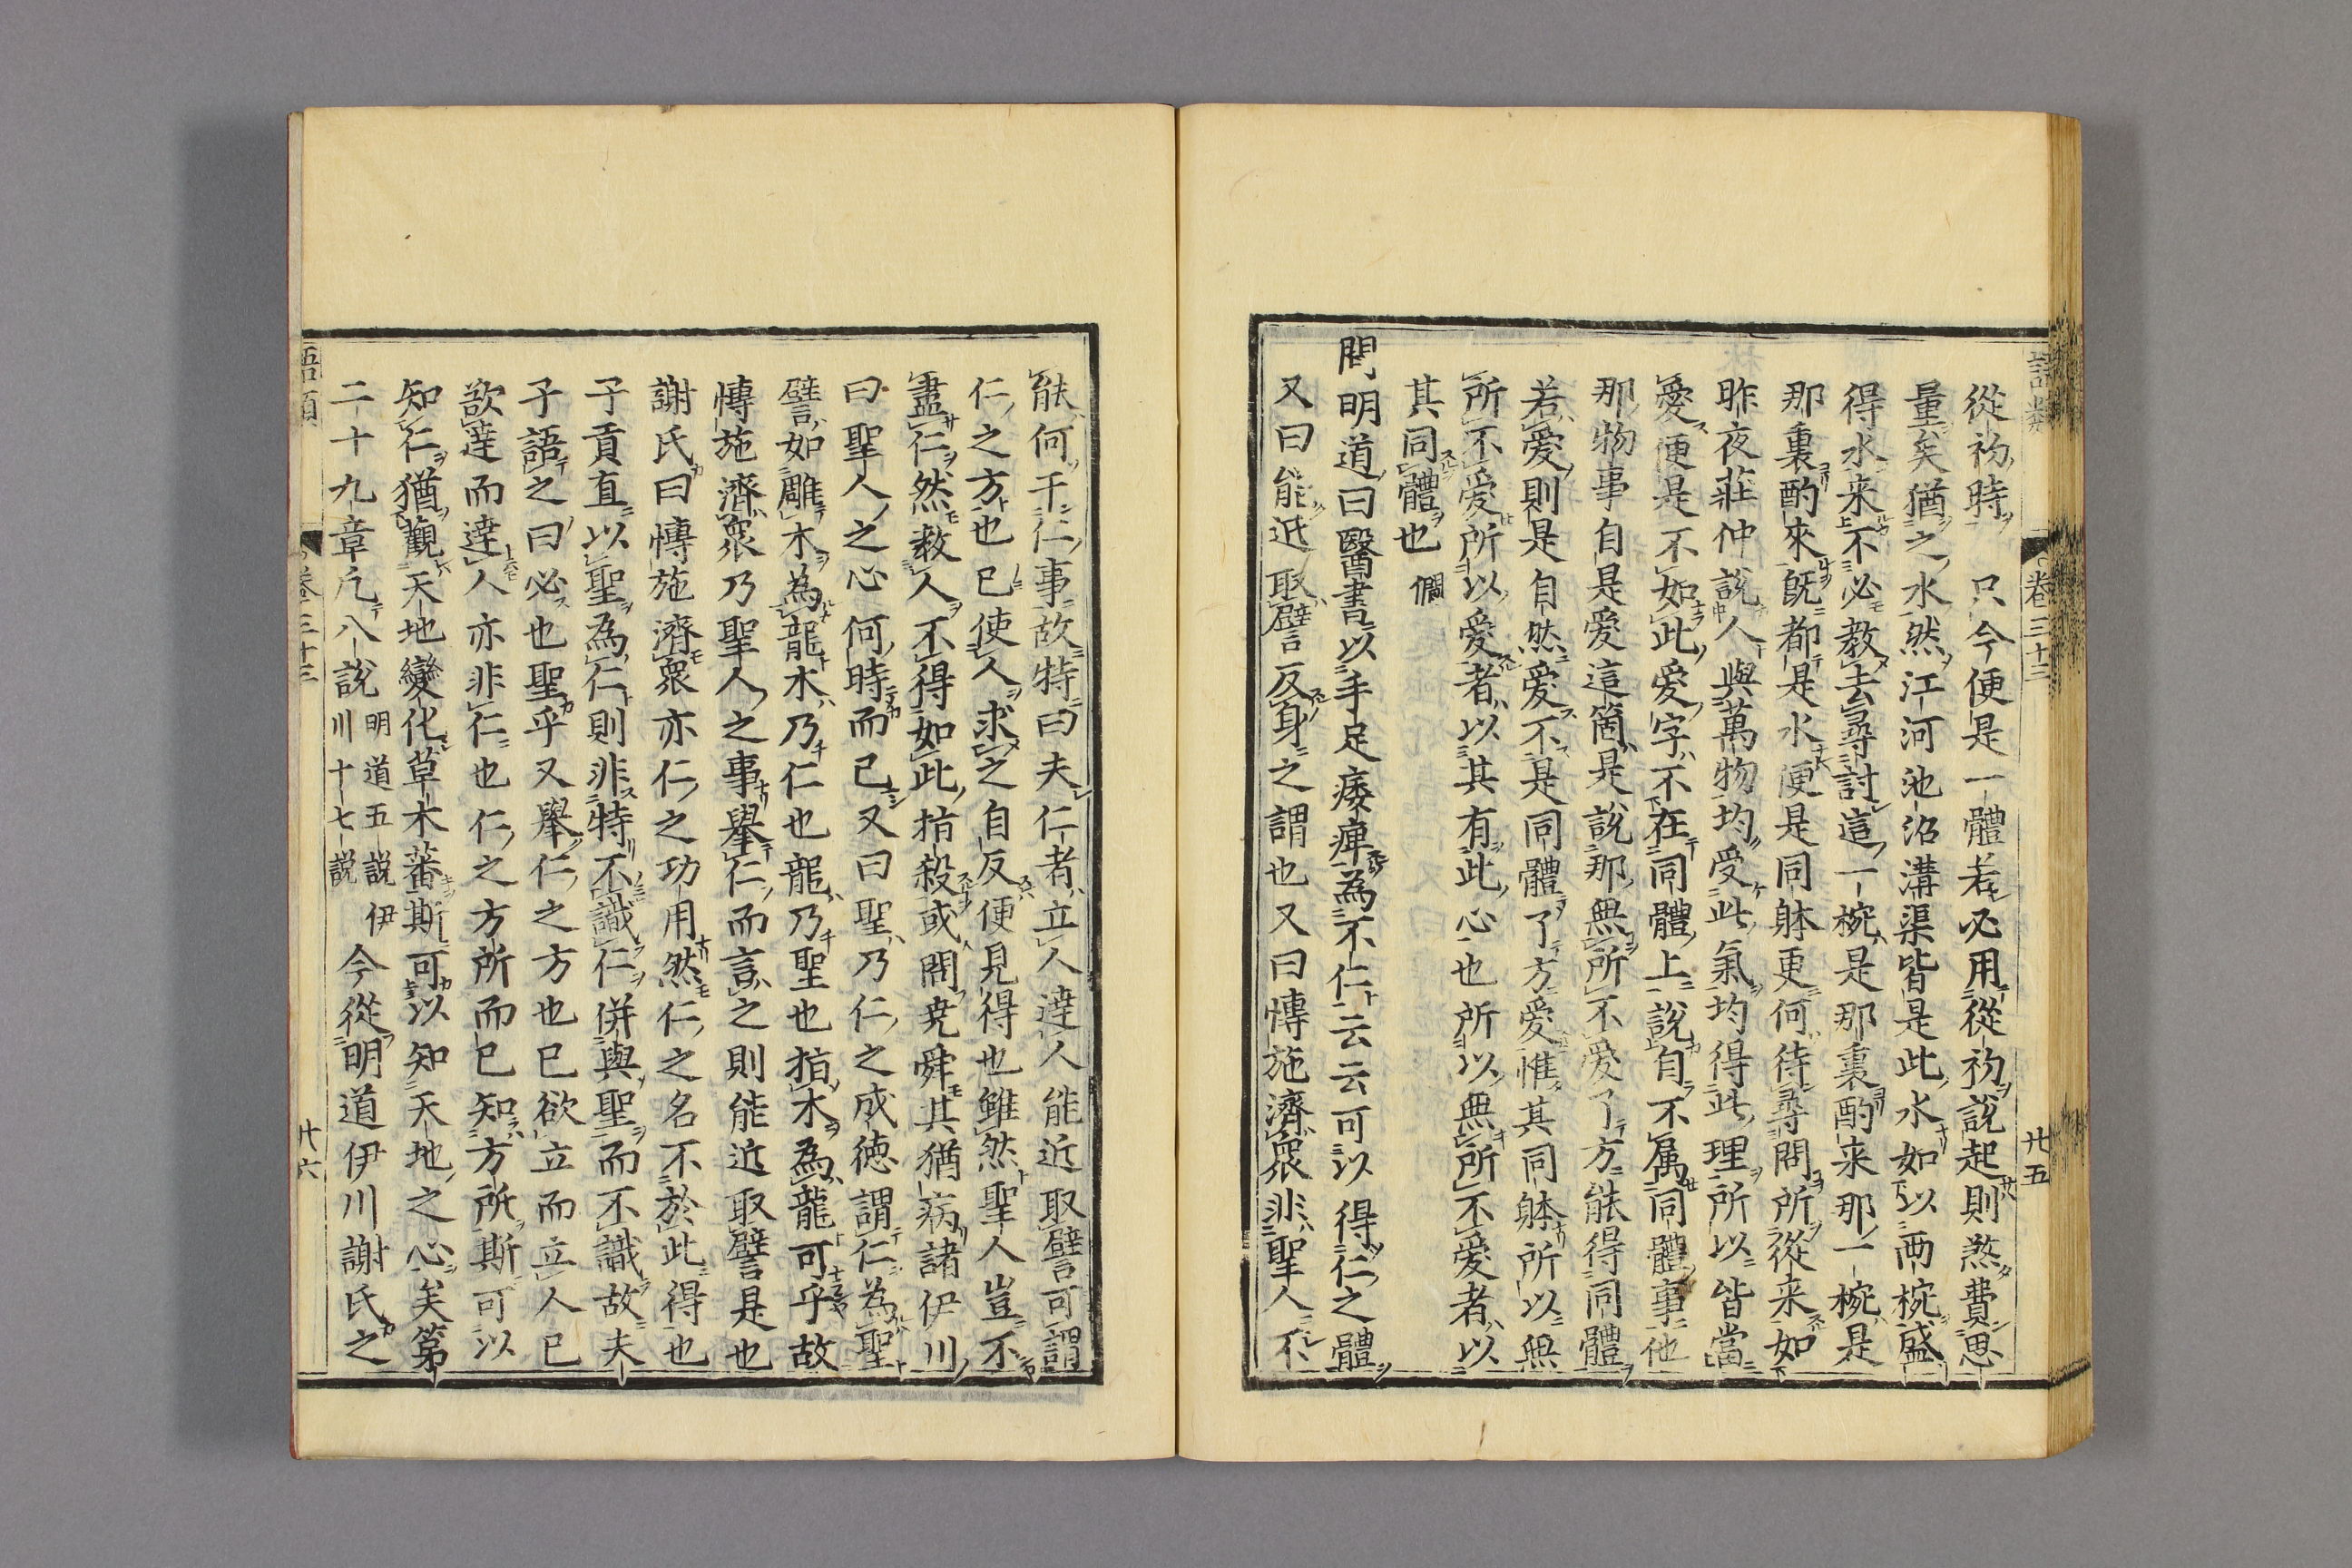 語類 卷三十三 廿五
從初時 只今便是一體若必用從初說起則煞費思
量矣猶之水然江河池沼溝渠皆是此水如以兩椀盛
得水来不必教去尋討這一椀是那裏酌来那一椀是
那裏酌來既都是水便是同躰更何待尋問所從来如
昨夜莊仲說人與萬物均受此氣均得此理所以皆當
愛便是不如此愛字不在同體上說自不属同體事他
那物事自是愛這箇是說那無所不愛了方能得同體
若愛則是自然愛不是同體了方愛惟其同躰所以無
所不愛所以愛者以其有此心也所以無所不愛者以
其同體也 僩
問明道曰醫書以手足痿痺為不仁云云可以得仁之體
又曰能近取譬反身之謂也又曰博施濟衆非聖人不
能何干仁事故特曰夫仁者立人達人能近取譬可謂
仁之方也已使人求之自反便見得也雖然聖人豈不
盡仁然教人不得如此指殺或問堯舜其猶病諸伊川
曰聖人之心何時而已又曰聖乃仁之成德謂仁為聖
譬如雕木為龍木乃仁也龍乃聖也指木為龍可乎故
博施濟衆乃聖人之事舉仁而言之則能近取譬是也
謝氏曰博施濟衆亦仁之功用然仁之名不於此得也
子貢直以聖為仁則非特不識仁併與聖而不識故夫
子語之曰必也聖乎又舉仁之方也已欲立而立人已
欲達而達人亦非仁也仁之方所而已知方所斯可以
知仁猶觀天地變化草木蕃斯可以知天地之心矣第
二十九章凡八說 明道五說伊川十七說 今從明道伊川謝氏之
語類 卷三十三 廿六